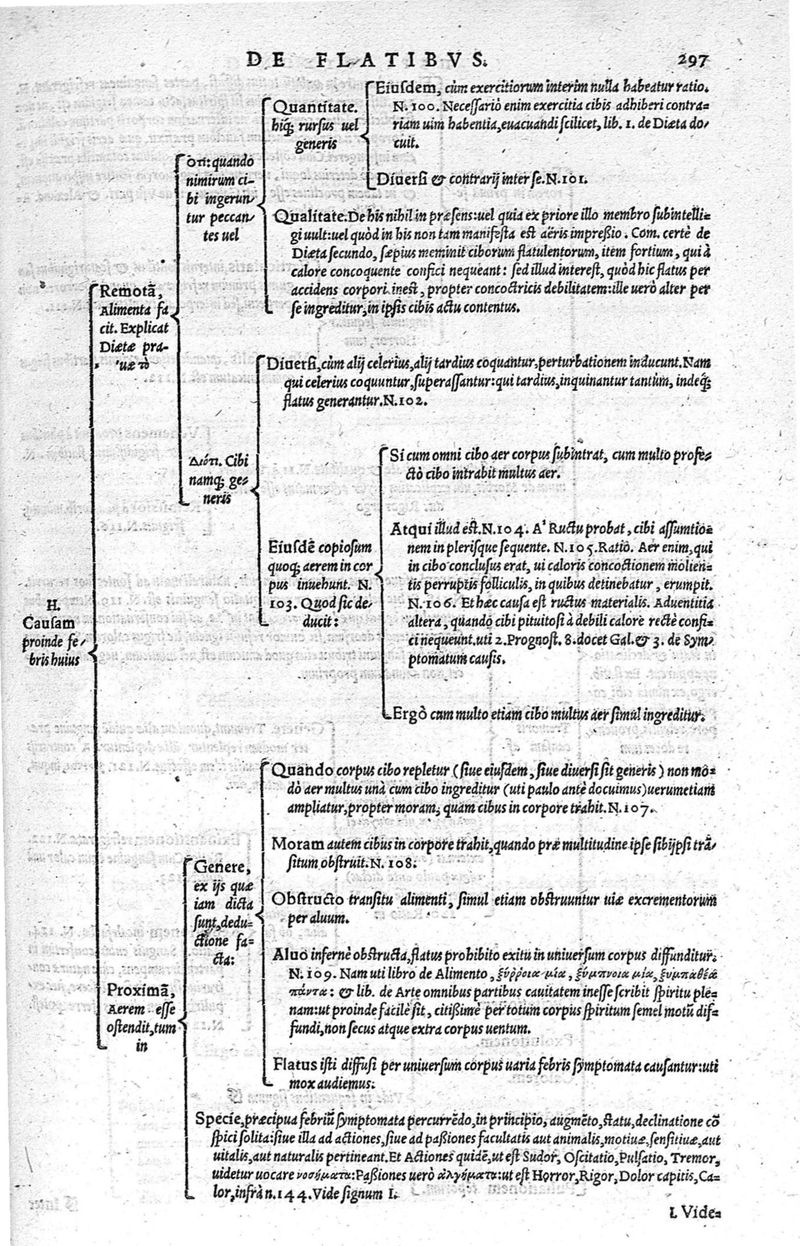 DE FLATIBVS.
297
H.
Causam
proinde fe-
bris huius
Remotã,
Alimenta fa
cit. Explicat
Diætæ pra-
uæ τὸ
ὅτι: quando
nimirum ci-
bi ingerun-
tur peccan-
tes uel
Quantitate.
hiq; rursus uel
generis
Eiusdem, cùm exercitiorum interim nulla habeatur ratio.
N. 100. Necessariò enim exercitia cibis adhiberi contra-
riam uim habentia, euacuandi scilicet, lib. 1. de Diæta do-
cuit.
Diuersi & contrarij inter se. N. 101.
Qualitate. De his nihil in præsens: uel quia ex priore illo membro subintelli-
gi uult: uel quòd in his non tam manifesta est aëris impreßio. Com. certè de
Diæta secundo, sæpius meminit ciborum flatulentorum, item fortium, qui à
calore concoquente confici nequeant: sed illud interest, quòd hic flatus per
accidens corpori inest, propter concoctricis debilitatem: ille uerò alter per
se ingreditur, in ipsis cibis actu contentus.
Διότι. Cibi
namq; ge-
neris
Diuersi, cùm alij celerius, alij tardius coquantur, perturbationem inducunt. Nam
qui celerius coquuntur, superassantur: qui tardius, inquinantur tantùm, indeq;
flatus generantur. N. 102.
Eiusdẽ copiosum
quoq; aerem in cor
pus inuehunt. N.
103. Quod sic de-
ducit:
Si cum omni cibo aer corpus subintrat, cum multo profe-
ctò cibo intrabit multus aer.
Atqui illud est. N. 104. A' Ructu probat, cibi assumtio-
nem in plerisque sequente. N. 105. Ratio. Aer enim, qui
in cibo conclusus erat, ui caloris concoctionem molien-
tis perruptis folliculis, in quibus detinebatur, erumpit.
N. 106. Et hæc causa est ructus materialis. Aduentitia
altera, quandò cibi pituitosi à debili calore rectè confi-
ci nequeunt. uti 2. Prognost. 8. docet Gal. & 3. de Sym-
ptomatum causis.
Ergò cum multo etiam cibo multus aer simul ingreditur.
Proximã,
Aerem esse
ostendit, tum
in
Genere,
ex ijs quæ
iam dicta
sunt, dedu-
ctione fa-
cta:
Quando corpus cibo repletur (siue eiusdem, siue diuersi sit generis) non mo-
dò aer multus unà cum cibo ingreditur (uti paulo antè docuimus) uerumetiam
ampliatur, propter moram, quam cibus in corpore trahit. N. 107.
Moram autem cibus in corpore trahit, quando præ multitudine ipse sibijpsi trã-
situm obstruit. N. 108.
Obstructo transitu alimenti, simul etiam obstruuntur uiæ excrementorum
per aluum.
Aluo infernè obstructa, flatus prohibito exitu in uniuersum corpus diffunditur.
N. 109. Nam uti libro de Alimento, ξύῤῥοια μία, ξύμπνοια μία, ξυμπαθέα
πάντα: & lib. de Arte omnibus partibus cauitatem inesse scribit spiritu ple-
nam: ut proinde facilè sit, citißimè per totum corpus spiritum semel motũ dif-
fundi, non secus atque extra corpus uentum.
Flatus isti diffusi per uniuersum corpus uaria febris symptomata causantur: uti
mox audiemus.
Specie, præcipua febriũ symptomata percurrẽdo, in principio, augmẽto, statu, declinatione cõ
spici solita: siue illa ad actiones, siue ad paßiones facultatis aut animalis, motiuæ, sensitiuæ, aut
uitalis, aut naturalis pertineant. Et Actiones quidẽ, ut est Sudor, Oscitatio, Pulsatio, Tremor,
uidetur uocare νοσήματα: Paßiones uerò ἀλγήματα: ut est Horror, Rigor, Dolor capitis, Ca-
lor, infrà n. 144. Vide signum I.
I. Vide-